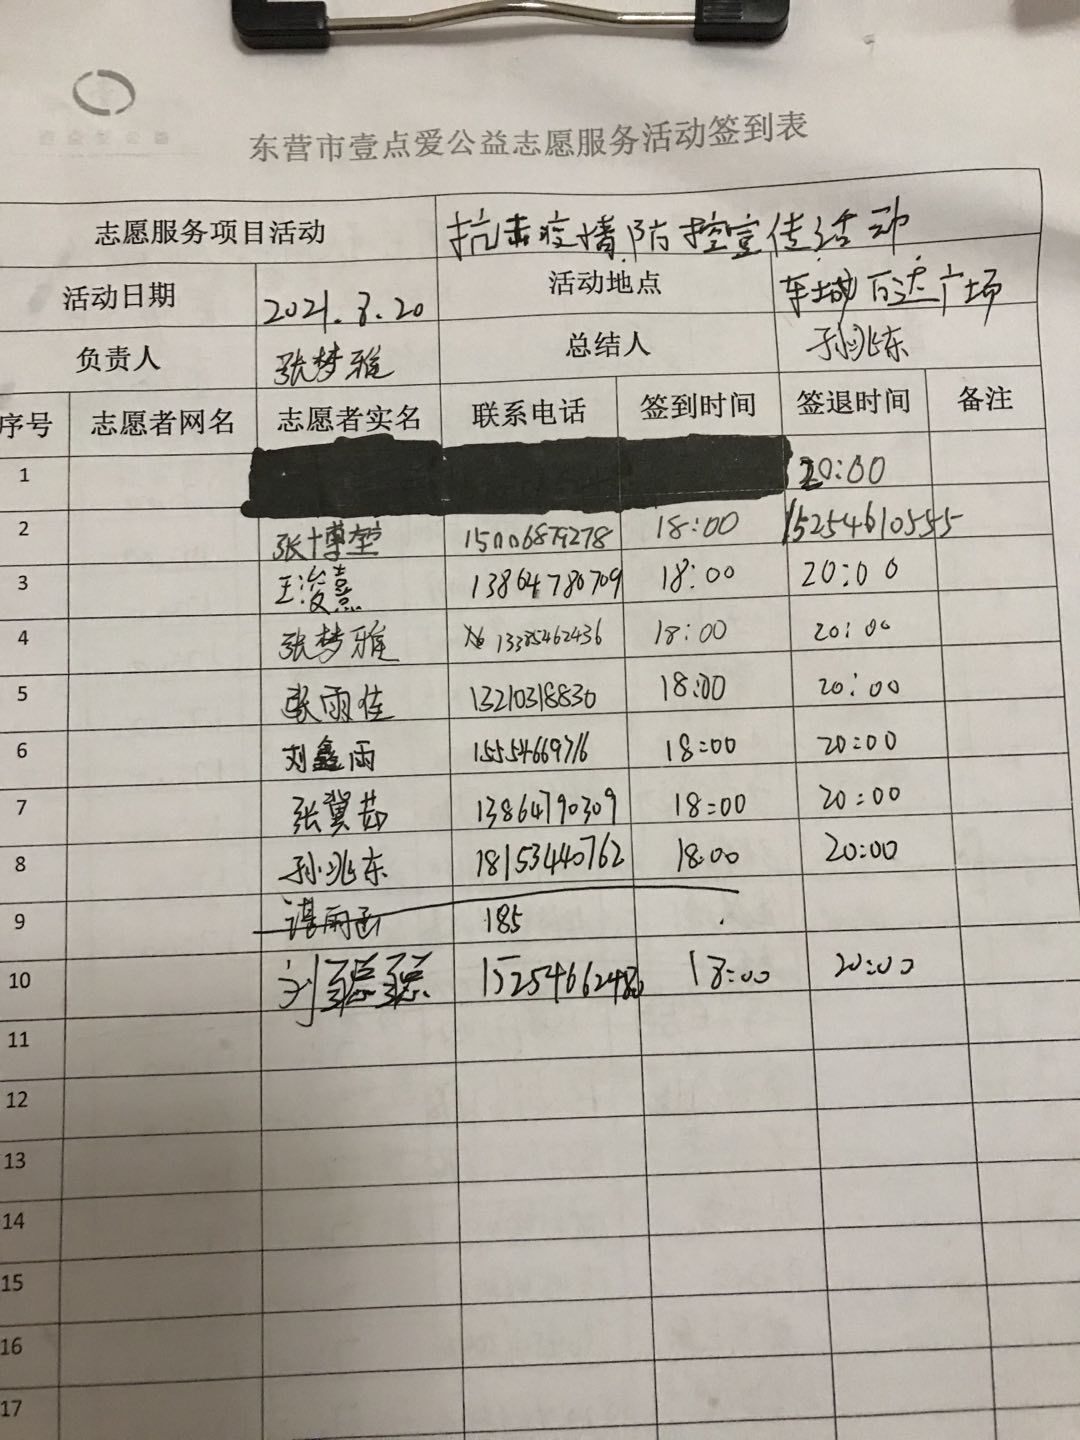 东营市壹点爱公益志愿服务活动签到表
志愿服务项目活动 抗击疫情防控宣传活动
活动日期 2021.8.20 活动地点 东城万达广场
负责人 张梦雅 总结人 孙兆东
序号 志愿者网名 志愿者实名 联系电话 签到时间 签退时间 备注
1 20:00
2 张博堃 15006879278 18:00 15254610555
3 王浚熹 13864780709 18:00 20:00
4 张梦雅 13385462436 18:00 20:00
5 张雨佳 13210318830 18:00 20:00
6 刘鑫雨 15554669716 18:00 20:00
7 张翼茹 13864790309 18:00 20:00
8 孙兆东 18153440762 18:00 20:00
9 185
10 刘 18:00 20:00
11
12
13
14
15
16
17